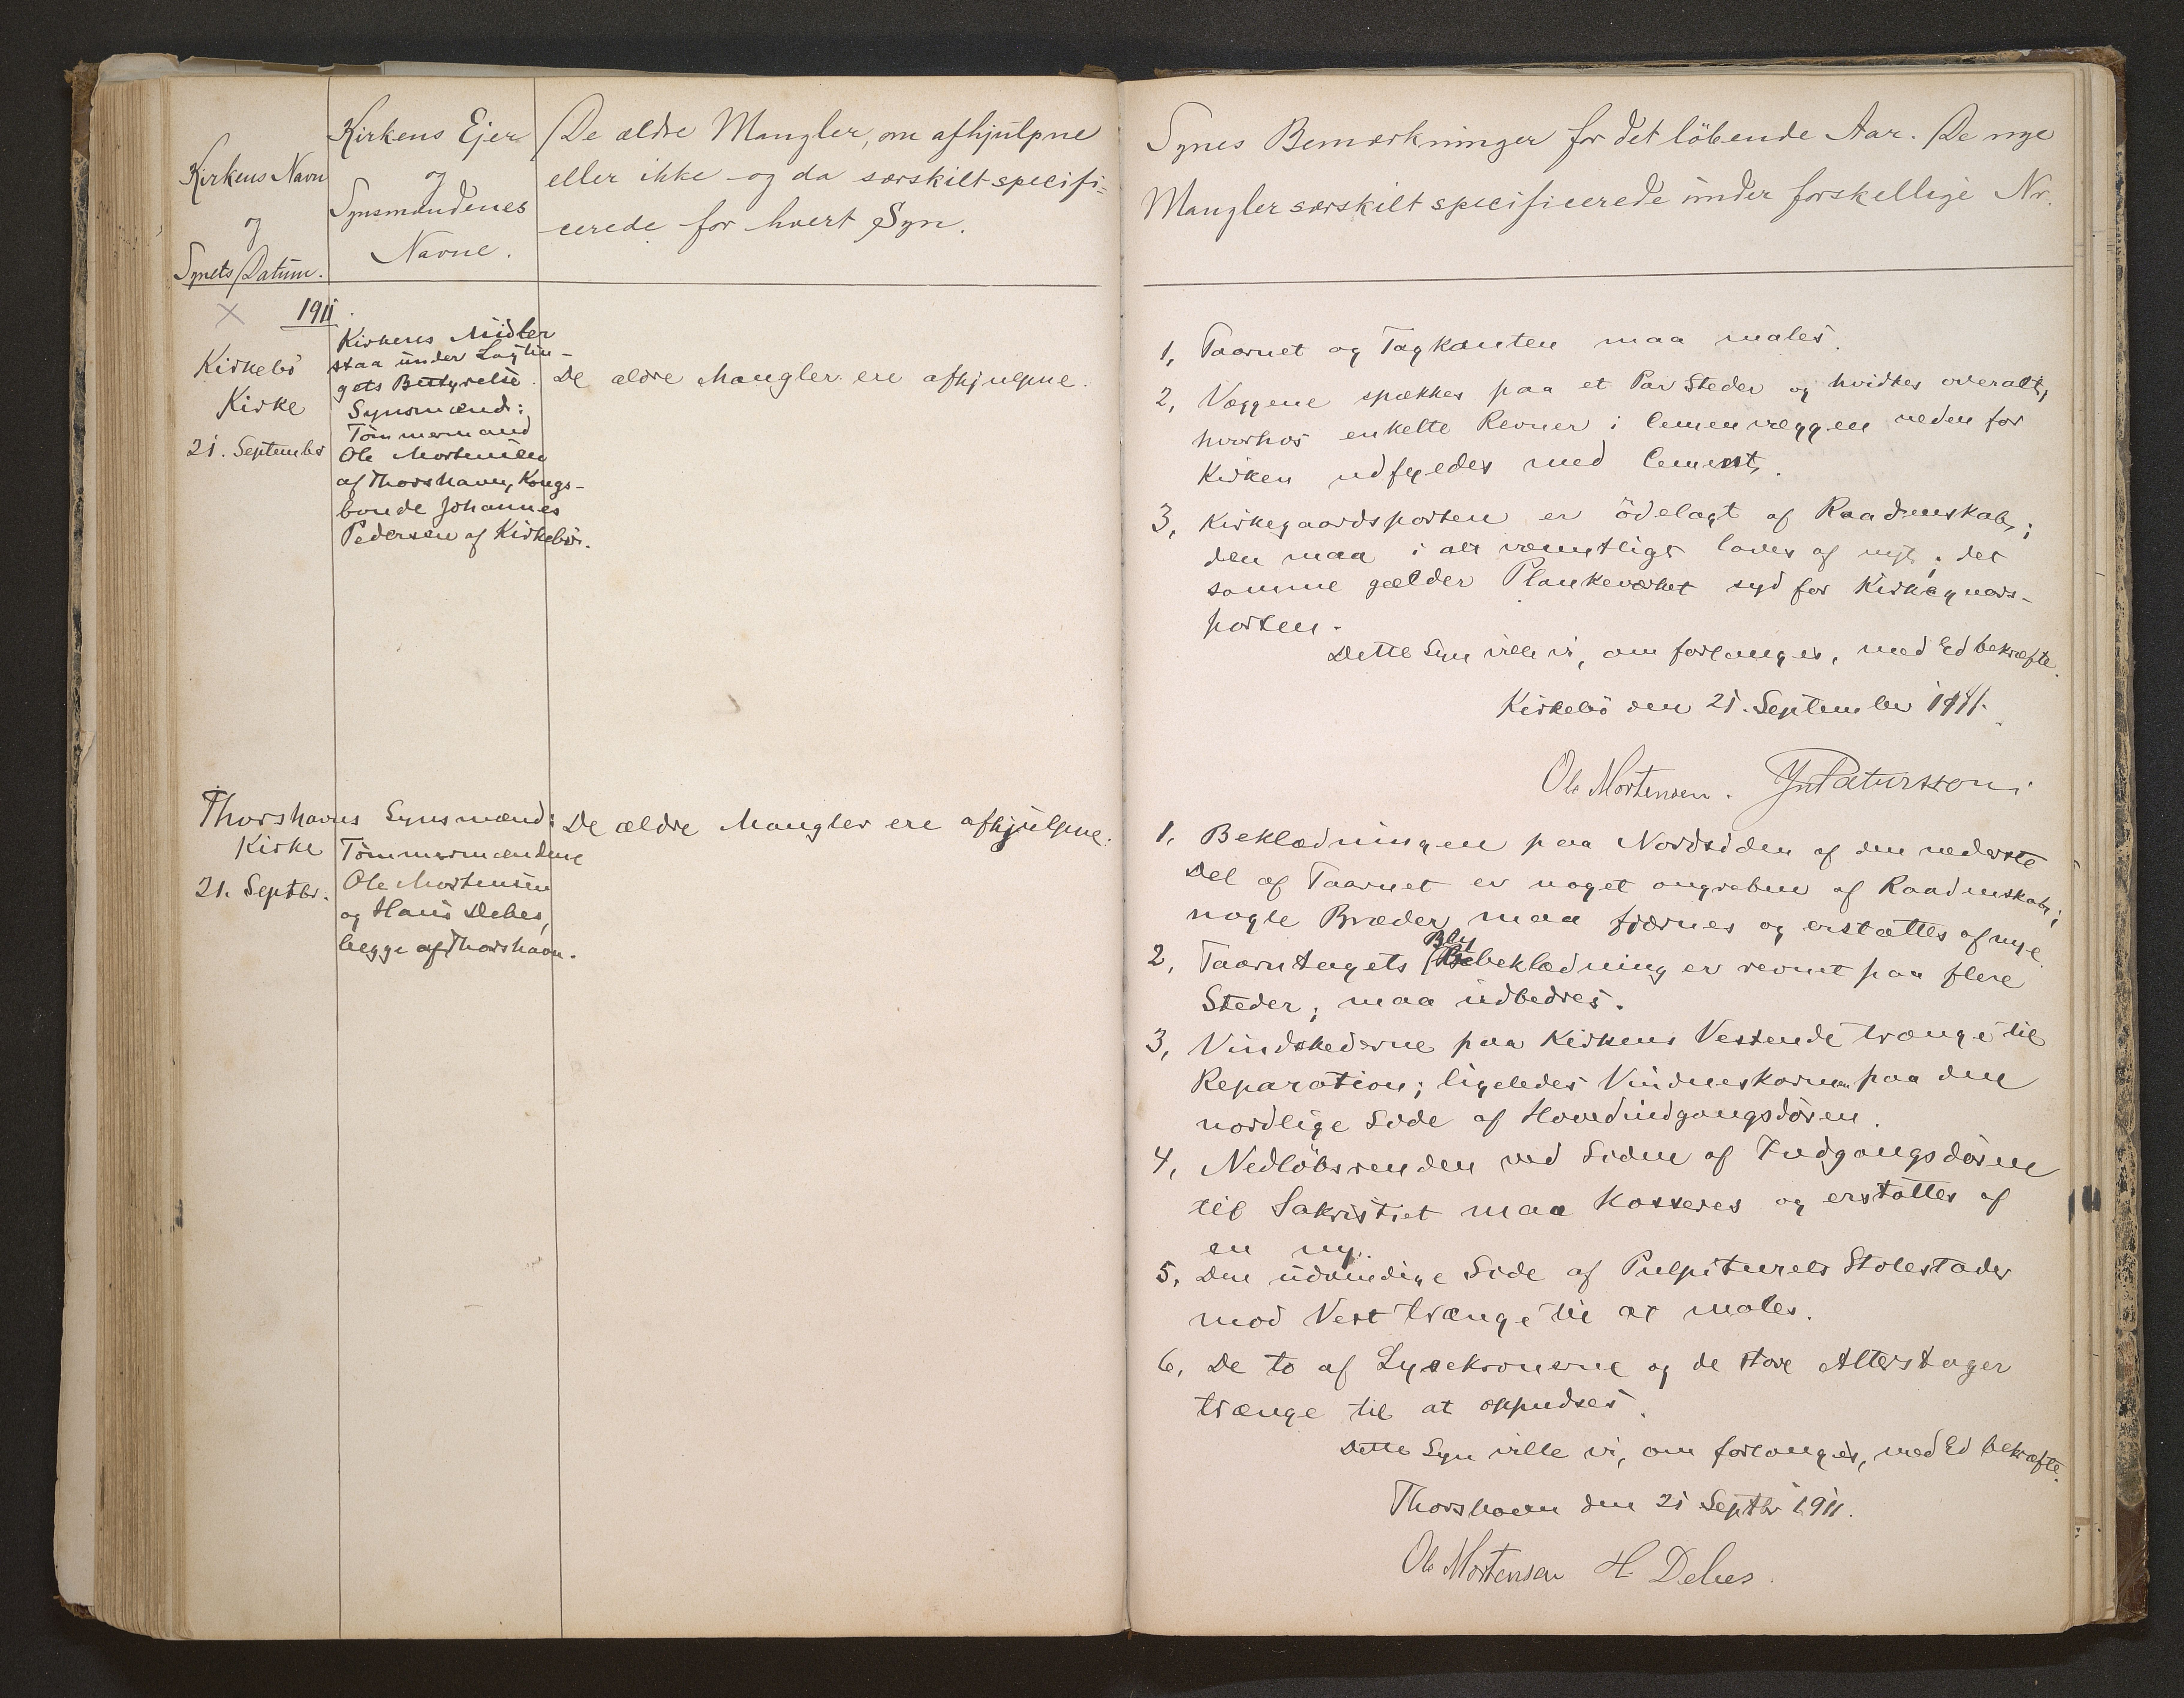 Kirkens Navn
og
Synets Datum.
Kirkens Ejer
og
Synsmændenes
Navne.
De ældre Mangler, om afhjulpne
eller ikke og da særskilt specifi=
cerede for hvert Syn.
1911
Kirkebö
Kirke
21. September
Kirkens Midler
staa under Lagtin-
gets Bestyrelse.
Synsmænd:
Tömmermand
Ole Mortensen
af Thorshavn, Kongs-
bonde Johannes
Pedersen af Kirkebö.
De ældre Mangler ere afhjulpne.
Thorshavns
Kirke
21. Septbr.
Synsmænd:
Tömmermændene
Ole Mortensen
og Hans Debes,
begge af Thorshavn.
De ældre Mangler ere afhjulpne.
Synes Bemærkninger for det löbende Aar. De nye
Mangler særskilt specificerede under forskellige Nr.
1, Taarnet og Tagkanten maa males.
2, Væggene spækkes paa et Par Steder og hvidtes overalt,
hvorhos enkelte Revner i Cemenvæggen neden for
Kirken udfyldes med Cement.
3, Kirkegaardsporten er ödelagt af Raadenskab;
den maa i alt væsentligt laves af nyt; det
samme gælder Plankeværket syd for Kirkegaards-
porten.
Dette Syn ville vi, om forlanges, med Ed bekræfte.
Kirkebö den 21. September 1911.
Ole Mortensen. Js Patursson
1, Beklædningen paa Nordsiden af den nederste
Del af Taarnet er noget angreben af Raadenskab;
nogle Bræder maa fjærnes og erstattes af nye.
2, Taarntagets Blybeklædning er revnet paa flere
Steder; maa udbedres.
3, Vindskederne paa Kirkens Vestende trænge til
Reparation; ligeledes Vindueskarmen paa den
nordlige Side af Hovedindgangsdören.
4, Nedlöbsrenden ved Siden af Indgangsdören
til Sakristiet maa kasseres og erstattes af
en ny.
5, Den udvendige Side af Pulpiturets Stolestader
mod Vest trænge til at males.
6, De to af Lysekronerne og de store Alterstager
trænge til at oppudses.
Dette Syn ville vi, om forlanges, med Ed bekræfte.
Thorshavn den 21 Septbr 1911.
Ole Mortensen H. Debes.